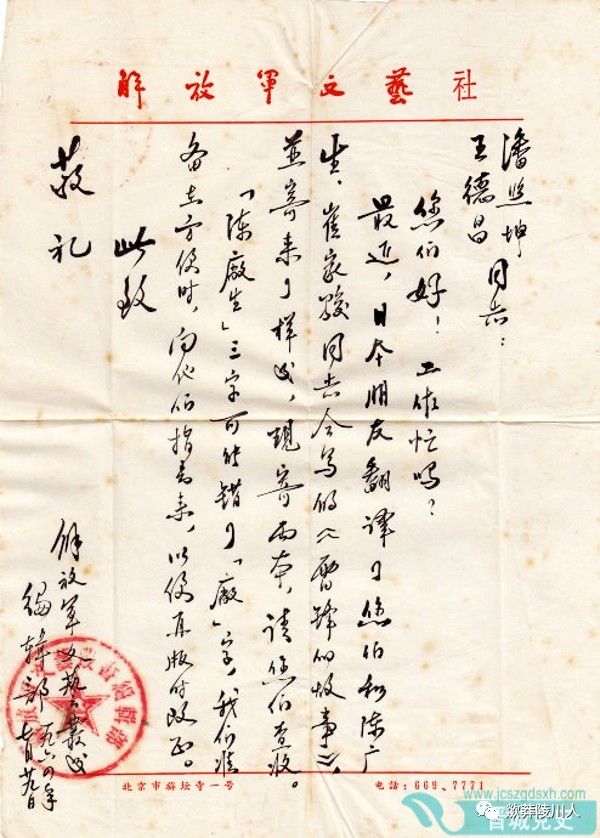 解放軍文藝社
潘照坤
王德昌 同志：
您们好！工作忙吗？
最近，日本朋友翻译了您们和陈广
生、崔家骏同志合写的《雷锋的故事》，
並寄来了样书，现寄两本，请您们查收。
「陈廠生」三字可能错了「廠」字，我们准
备在方便时，向他们指出来，以便再版时改正。
此致
敬礼
解放军文艺丛书
编辑部 一九六四年
七月廿九日
北京市旃坛寺一号
电话：669、7771
www.jcszgdsxh.com
晋城党史
微莽陵川人